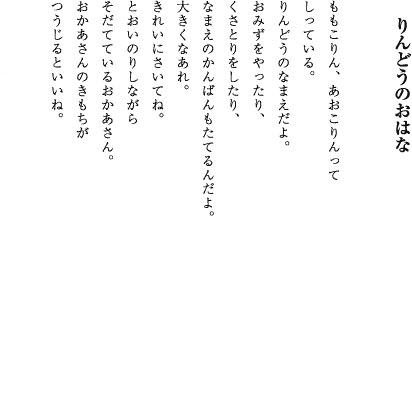 りんどうのおはな
ももこりん、あおこりんって
しっている。
りんどうのなまえだよ。
おみずをやったり、
くさとりをしたり、
なまえのかんばんもたてるんだよ。
大きくなあれ。
きれいにさいてね。
とおいのりしながら
そだてているおかあさん。
おかあさんのきもちが
つうじるといいね。